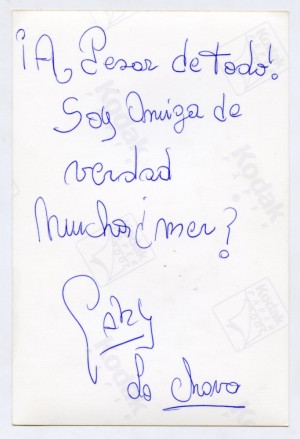 ¡A Pesar de todo!
Soy Amiga de
verdad
Muchos ¿mer?
Gaby
La Chava
Kodak
Kodak
Kodak
Kodak